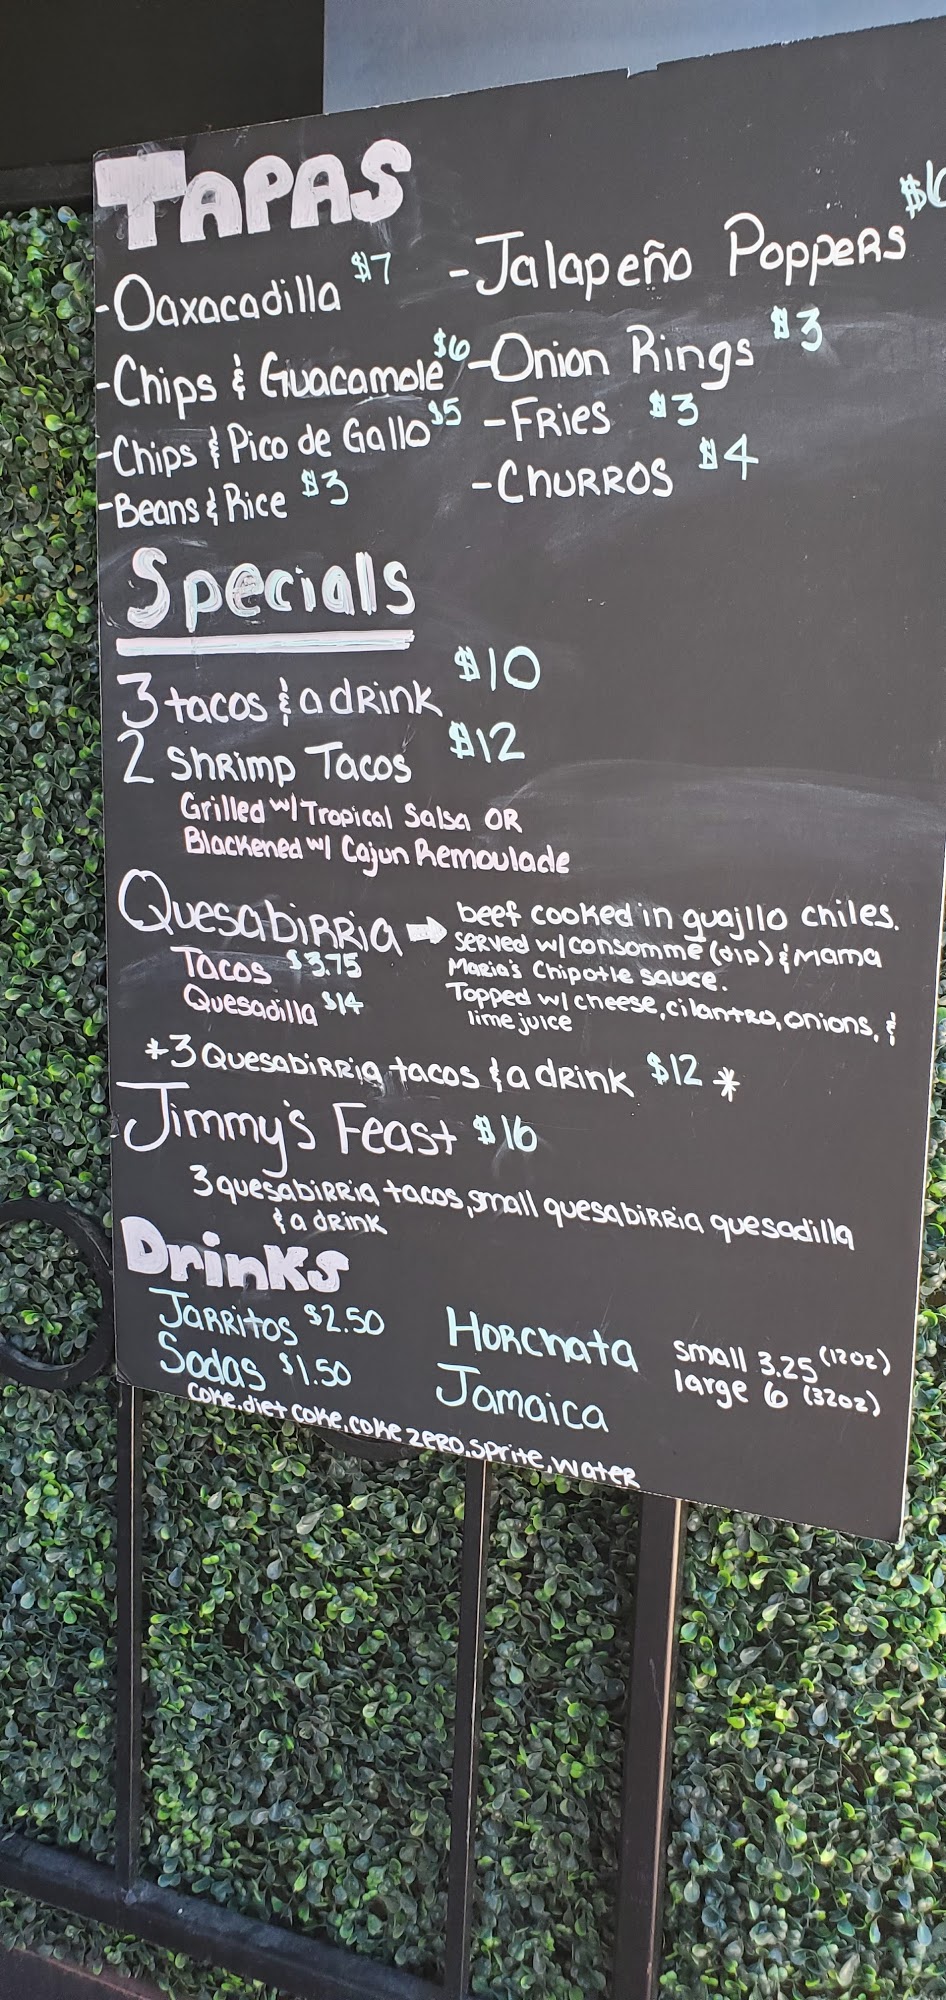 TAPAS
-Oaxacadilla $7
-Jalapeño Poppers $6
-Chips & Guacamole $6
-Onion Rings $3
-Chips & Pico de Gallo $5
-Fries $3
-Beans & Rice $3
-Churros $4
Specials
3 tacos & a drink $10
2 Shrimp Tacos $12
Grilled w/ Tropical Salsa OR
Blackened w/ Cajun Remoulade
Quesabirria → beef cooked in guajillo chiles.
served w/ consomme (dip) & Mama
Tacos $3.75
Maria's Chipotle sauce.
Quesadilla $14
Topped w/ cheese, cilantro, onions, &
lime juice
*3 Quesabirria tacos & a drink $12*
Jimmy's Feast $16
3 quesabirria tacos, small quesabirria quesadilla
& a drink
Drinks
Jarritos $2.50
Sodas $1.50
coke, diet coke, coke zero, sprite, water
Horchata
Jamaica
small 3.25 (12oz)
large 6 (32oz)